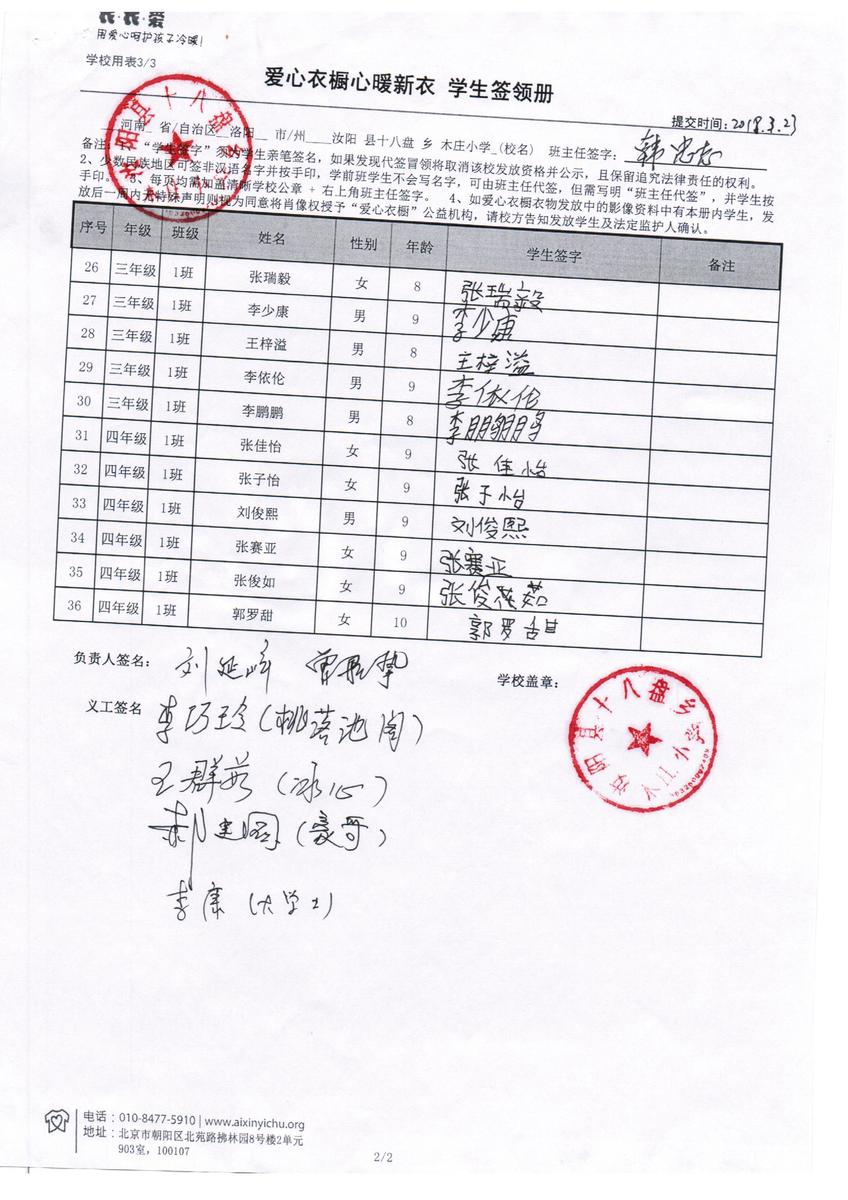 衣·衣·爱
用爱心呵护孩子冷暖!
学校用表3/3
爱心衣橱心暖新衣 学生签领册
提交时间:2018.3.23
河南_ 省/自治区_ 洛阳_ 市/州____汝阳 县十八盘 乡 木庄小学_(校名) 班主任签字:
备注: 须为学生亲笔签名,如果发现代签冒领将取消该校发放资格并公示,且保留追究法律责任的权利。
2、少数民族地区可签非汉语名字并按手印,学前班学生不会写名字,可由班主任代签,但需写明“班主任代签”,并学生按
手印。 3、每页均需加盖清晰学校公章 + 右上角班主任签字。 4、如爱心衣橱衣物发放中的影像资料中有本册内学生,发
放后一周内无特殊声明则视为同意将肖像权授予“爱心衣橱”公益机构,请校方告知发放学生及法定监护人确认。
序号 年级 班级 姓名 性别 年龄 学生签字 备注
26 三年级 1班 张瑞毅 女 8 张瑞毅
27 三年级 1班 李少康 男 9 李少康
28 三年级 1班 王梓溢 男 8 王梓溢
29 三年级 1班 李依伦 男 9 李依伦
30 三年级 1班 李鹏鹏 男 8 李鹏鹏
31 四年级 1班 张佳怡 女 9 张佳怡
32 四年级 1班 张子怡 女 9 张子怡
33 四年级 1班 刘俊熙 男 9 刘俊熙
34 四年级 1班 张赛亚 女 9 张赛亚
35 四年级 1班 张俊如 女 9 张俊茹
36 四年级 1班 郭罗甜 女 10 郭罗甜
负责人签名: 刘延峰
学校盖章:
义工签名 李巧玲(桃落池闲)
王群 (冰心)
郝建国(豪哥)
李康(大学士)
汝阳县十八盘乡
木庄小学
电话:010-8477-5910 | www.aixinyichu.org
地址:北京市朝阳区北苑路拂林园8号楼2单元
903室,100107
2/2